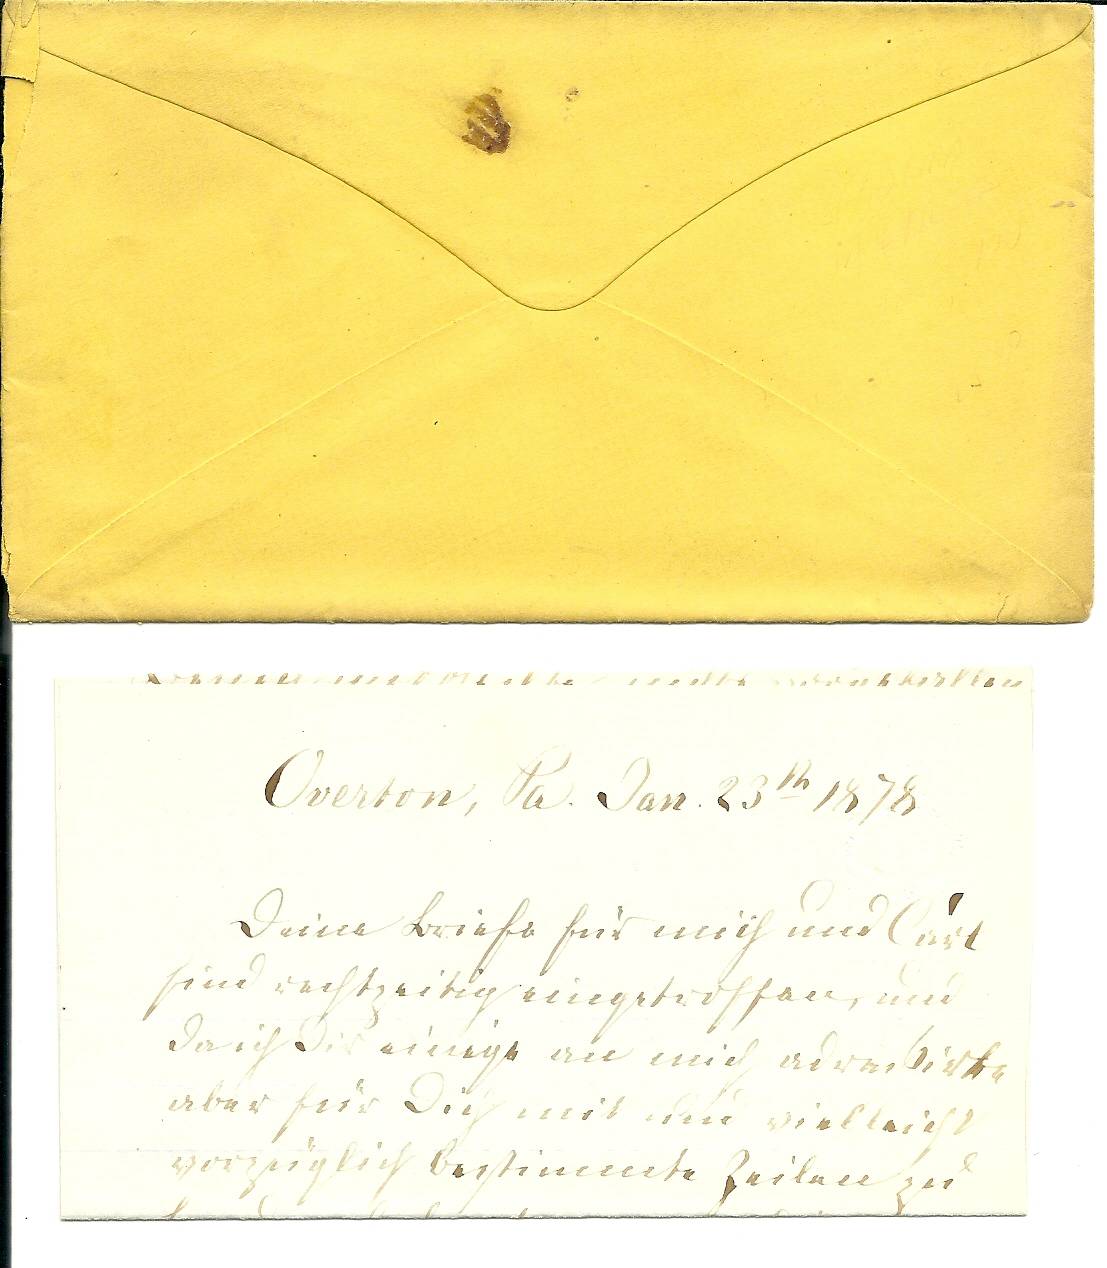 Overton, Pa. Jan. 23th 1878
Deine Briefe für mich und Carl
sind rechtzeitig eingetroffen, und
da ich Dir einige an mich adressirte
aber für Dich mit und vielleicht
vorzüglich bestimmte Zeilen zu